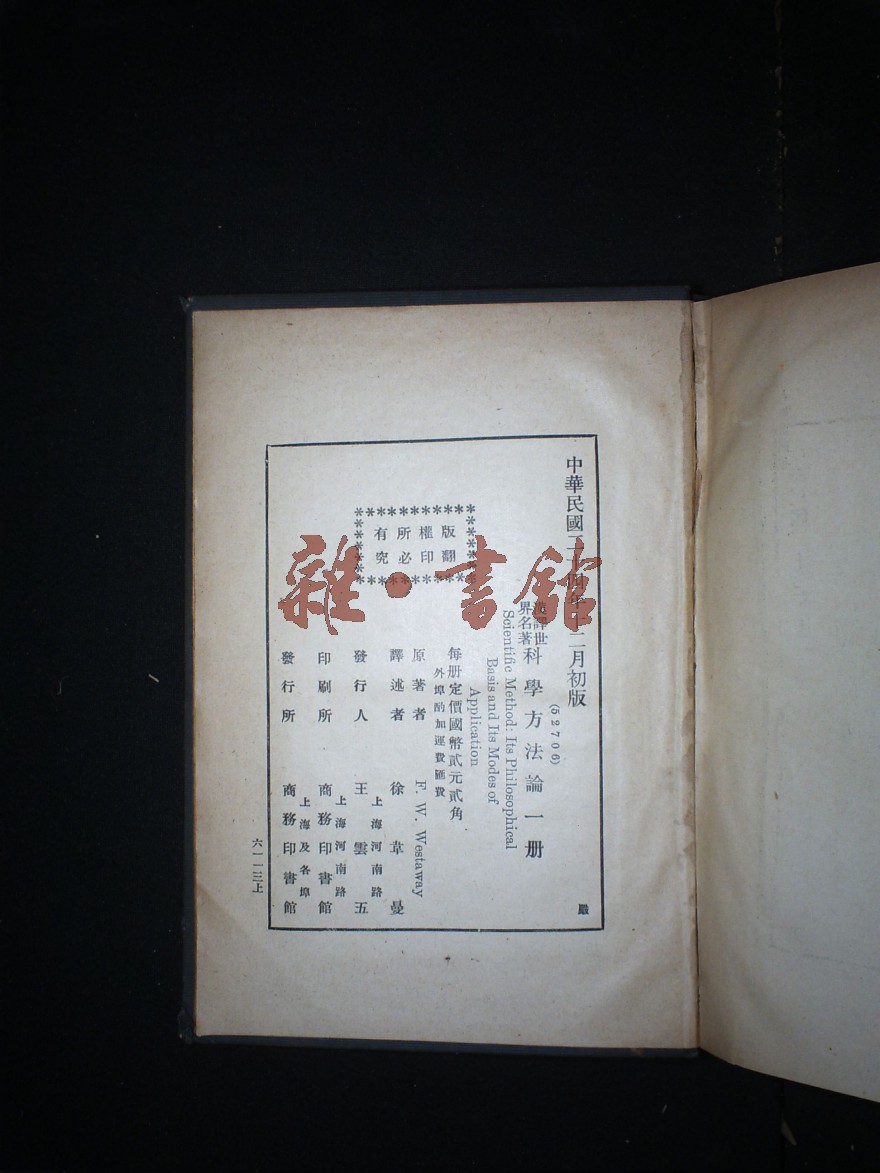 中華民國二十四年十二月初版
(52706)
漢譯世界名著 科學方法論 一册
Scientific Method: Its Philosophical
Basis and Its Modes of
Application
每册定價國幣貳元貳角
外埠酌加運費匯費
原著者 F. W. Westaway
譯述者 徐韋曼
發行人 王雲五
上海河南路
印刷所 商務印書館
上海河南路
發行所 商務印書館
上海及各埠
版權所有
翻印必究
嚴
六一一三上
雜·書館